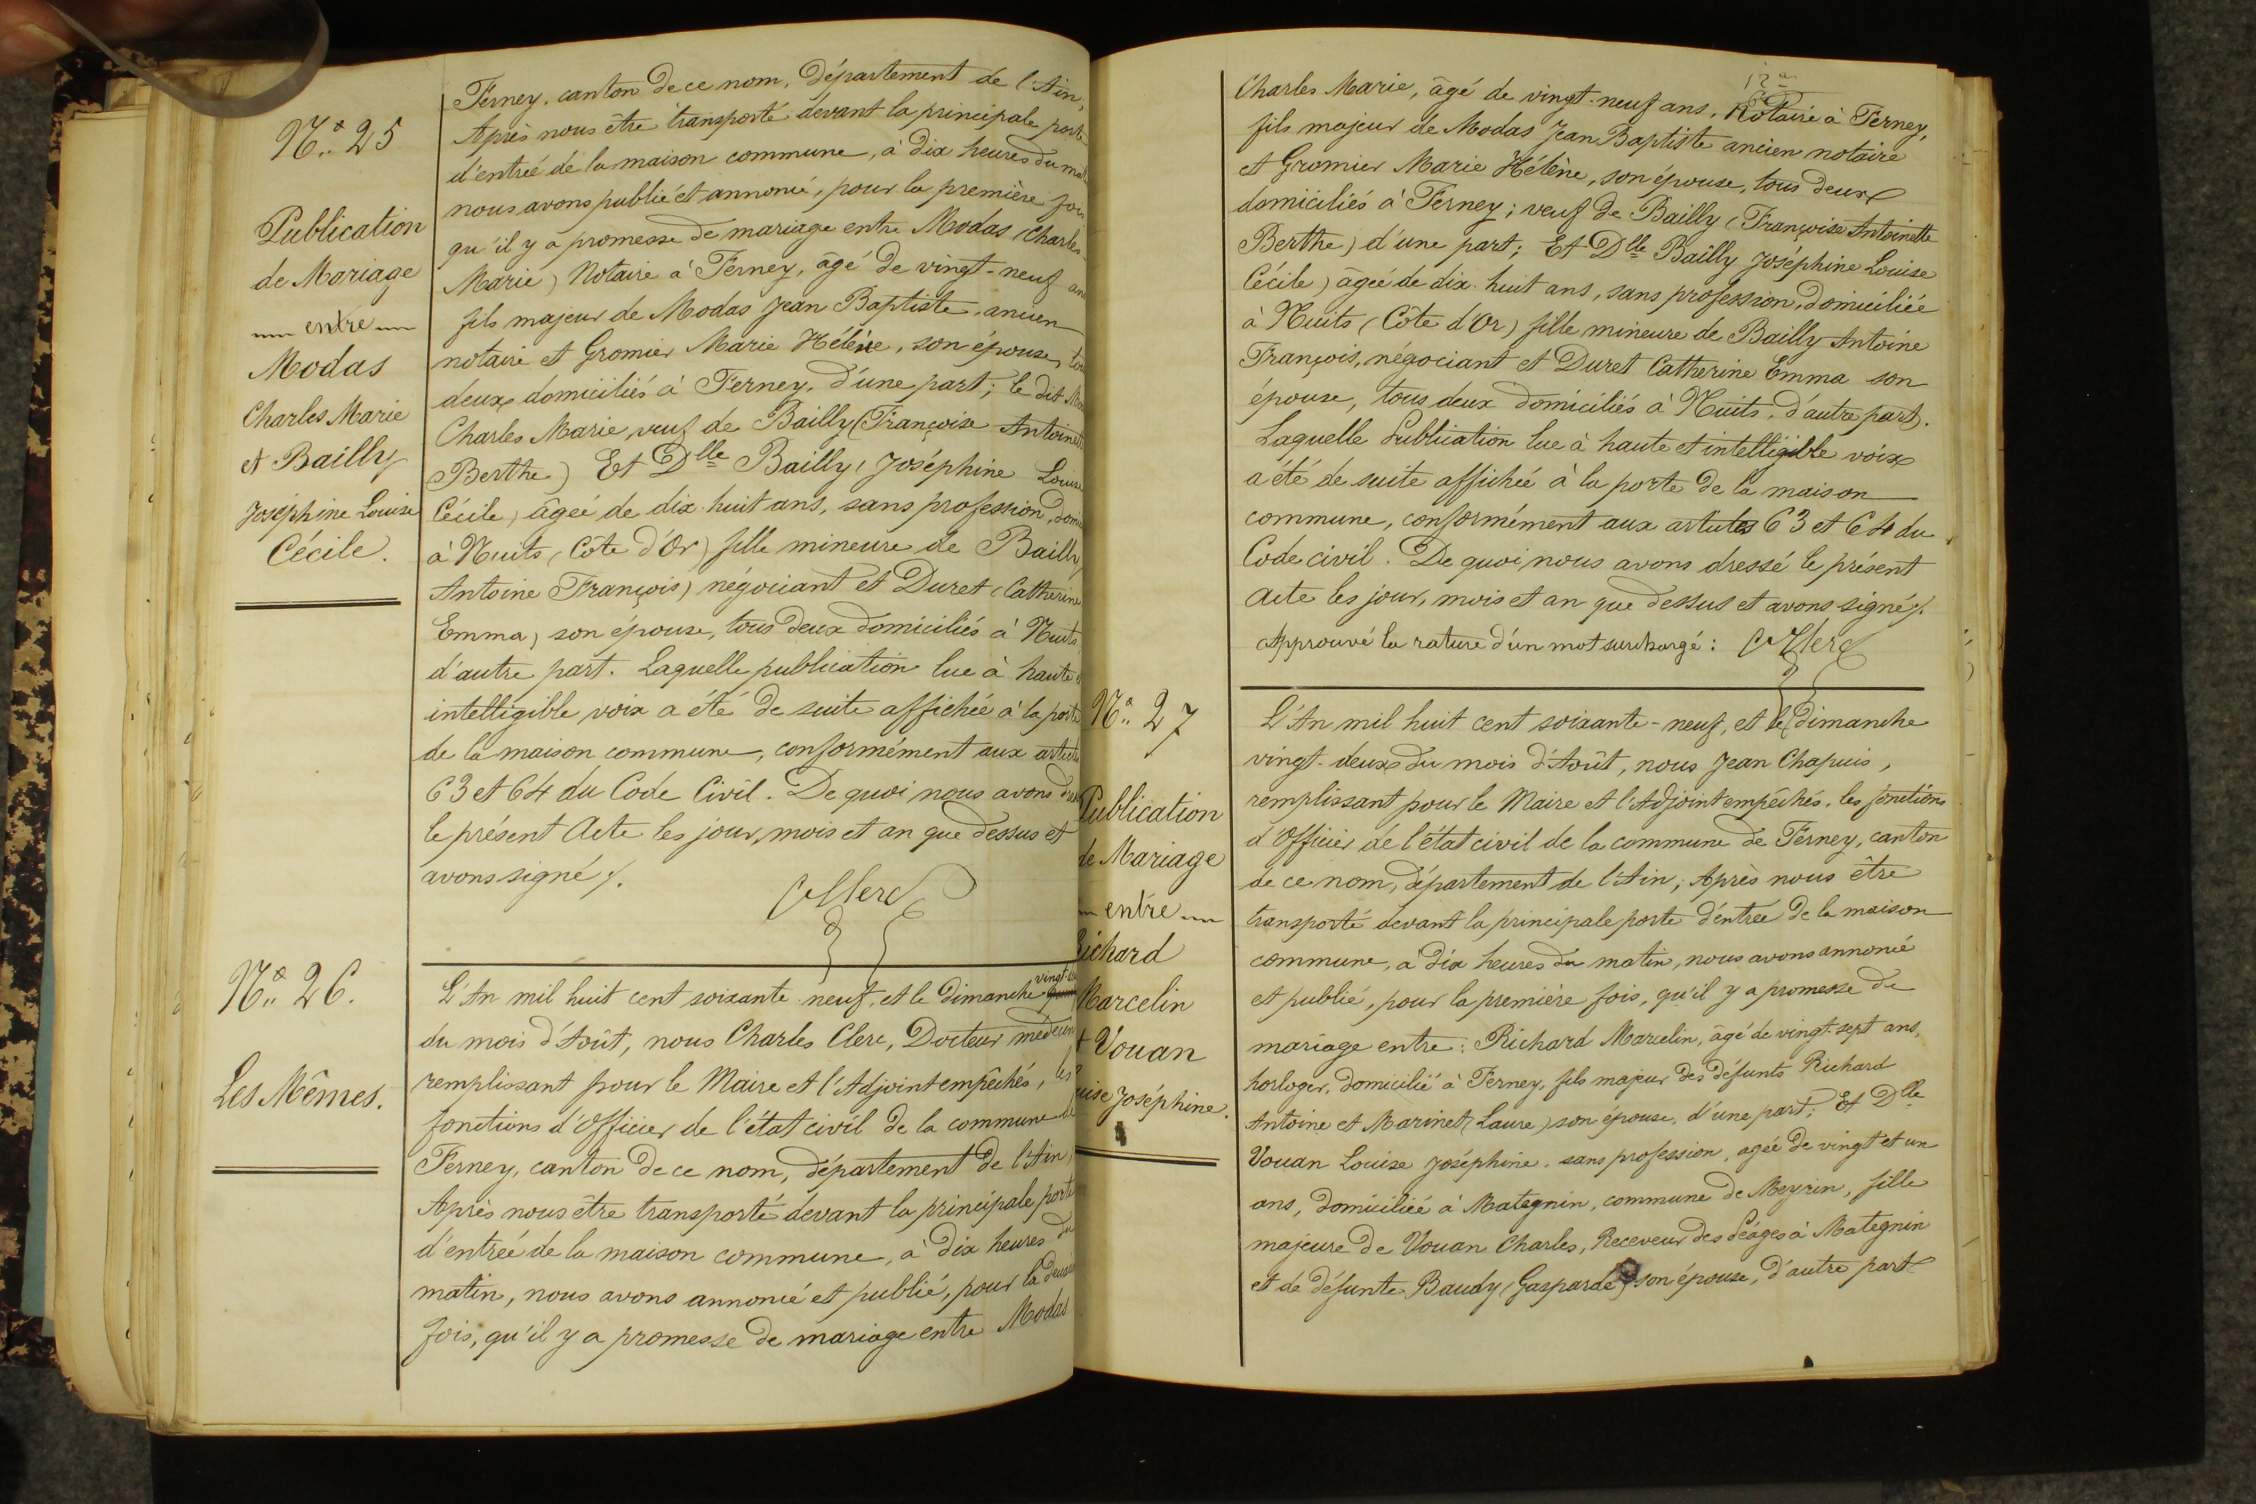 Nº 25
Publication
de Mariage
entre
Modas
Charles Marie
et Bailly
Joséphine Louise
Cécile.
Ferney, canton de ce nom, Département de l'Ain,
Après nous être transporté devant la principale porte
d'entrée de la maison commune, à dix heures du
nous avons publié et annoncé, pour la première
qu'il y a promesse de mariage entre Modas (Charles
Marie) Notaire à Ferney, âgé de vingt-neuf
fils majeur de Modas Jean Baptiste, ancien
notaire et Gromier Marie Hélène, son épouse,
deux domiciliés à Ferney, d'une part; le dit
Charles Marie, veuf de Bailly (Françoise
Berthe) Et Dlle Bailly, Joséphine Louise
Cécile) âgée de dix-huit ans, sans profession,
à Nuits (Côte d'Or) fille mineure de Bailly
Antoine François) négociant et Duret (Catherine
Emma) son épouse, tous deux domiciliés à Nuits,
d'autre part. Laquelle publication lue à haute
intelligible voix a été de suite affichée à la porte
de la maison commune, conformément aux
63 et 64 du Code Civil. De quoi nous avons
le présent Acte les jour, mois et an que dessus et
avons signé /.
Clerc
Nº 26.
Les Mêmes.
L'An mil huit cent soixante-neuf, et le dimanche
du mois d'Août, nous Charles Clerc, Docteur médecin
remplissant pour le Maire et l'Adjoint empêchés, les
fonctions d'Officier de l'état civil de la commune de
Ferney, canton de ce nom, département de l'Ain,
Après nous être transporté devant la principale porte
d'entrée de la maison commune, à dix heures du
matin, nous avons annoncé et publié, pour la
fois, qu'il y a promesse de mariage entre Modas
Charles Marie, âgé de vingt-neuf ans, Notaire à Ferney,
fils majeur de Modas Jean Baptiste ancien notaire
et Gromier Marie Hélène, son épouse, tous deux
domiciliés à Ferney; veuf de Bailly (Françoise Antoinette
Berthe) d'une part; Et Dlle Bailly Joséphine Louise
Cécile) âgée de dix-huit ans, sans profession, domiciliée
à Nuits (Côte d'Or) fille mineure de Bailly Antoine
François, négociant et Duret Catherine Emma son
épouse, tous deux domiciliés à Nuits, d'autre part.
Laquelle Publication lue à haute et intelligible voix
a été de suite affichée à la porte de la maison
commune, conformément aux articles 63 et 64 du
Code civil. De quoi nous avons dressé le présent
Acte les jour, mois et an que dessus et avons signé /.
Approuvé la rature d'un mot surchargé: Clerc
Nº 27
Publication
de Mariage
entre
Richard
Marcelin
Vouan
Joséphine.
L'An mil huit cent soixante-neuf, et le dimanche
vingt-deux du mois d'Août, nous Jean Chapuis,
remplissant pour le Maire et l'Adjoint empêchés, les fonctions
d'Officier de l'état civil de la commune de Ferney, canton
de ce nom, département de l'Ain; Après nous être
transporté devant la principale porte d'entrée de la maison
commune, à dix heures du matin, nous avons annoncé
et publié, pour la première fois, qu'il y a promesse de
mariage entre: Richard Marcelin, âgé de vingt-sept ans,
horloger, domicilié à Ferney, fils majeur des défunts Richard
Antoine et Marinet (Laure) son épouse, d'une part; Et Dlle
Vouan Louise Joséphine, sans profession, agée de vingt et un
ans, domiciliée à Mategnin, commune de Meyrin, fille
majeure de Vouan Charles, Receveur des Péages à Mategnin
et de défunte Baudy (Gasparde) son épouse, d'autre part